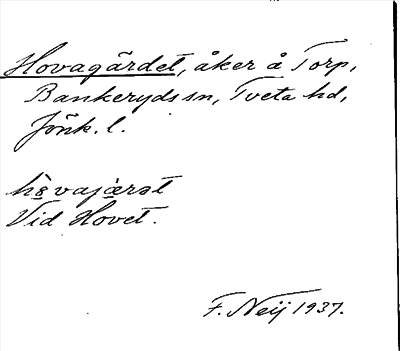 Hovagärdet, åker å Torp,
Bankeryds sn, Tveta hd,
Jönk. l.
Vid Hovet.
F. Neij 1937.